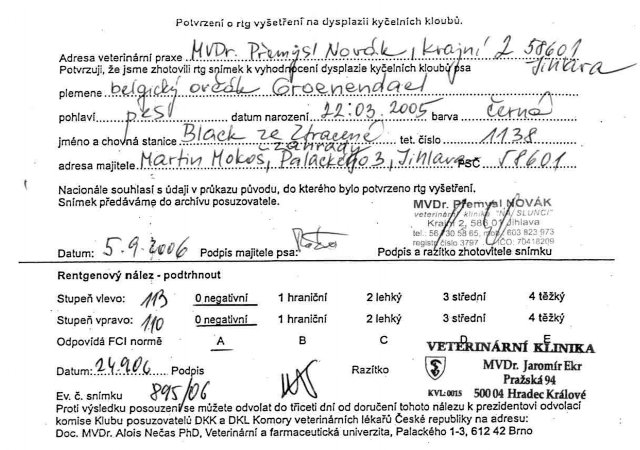 Potvrzení o rtg vyšetření na dysplazii kyčelních kloubů.
Adresa veterinární praxe MVDr. Přemysl Novák, Krajní 2 58601 Jihlava
Potvrzuji, že jsme zhotovili rtg snímek k vyhodnocení dysplazie kyčelních kloubů psa
plemene belgický ovčák Groenendael
pohlaví pes datum narození 22.03.2005 barva černá
jméno a chovná stanice Black ze Ztracené zahrady tet. číslo 1138
adresa majitele Martin Mokos, Palackého 3, Jihlava PSČ 58601
Nacionále souhlasí s údaji v průkazu původu, do kterého bylo potvrzeno rtg vyšetření.
Snímek předáváme do archívu posuzovatele.
MVDr. Přemysl NOVÁK
veterinární klinika "NA SLUNCI"
Krajní 2, 586 01 Jihlava
tel.: 56 730 58 65, mob.: 603 823 973
registr. číslo 3797 IČO: 70418209
Datum: 5.9.2006 Podpis majitele psa: Podpis a razítko zhotovitele snímku
Rentgenový nález - podtrhnout
Stupeň vlevo: 113 0 negativní 1 hraniční 2 lehký 3 střední 4 těžký
Stupeň vpravo: 110 0 negativní 1 hraniční 2 lehký 3 střední 4 těžký
Odpovídá FCI normě A B C D E
VETERINÁRNÍ KLINIKA
Datum: 24.9.06 Podpis Razítko MVDr. Jaromír Ekr
Pražská 94
Ev. č. snímku 895/06 KVL: 0015 500 04 Hradec Králové
Proti výsledku posouzení se můžete odvolat do třiceti dní od doručení tohoto nálezu k prezidentovi odvolací
komise Klubu posuzovatelů DKK a DKL Komory veterinárních lékařů České republiky na adresu:
Doc. MVDr. Alois Nečas PhD, Veterinární a farmaceutická univerzita, Palackého 1-3, 612 42 Brno